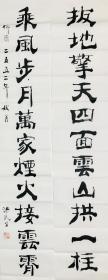 拔地擎天四面雲山拱一柱
乘風步月萬家煙火接雲霄